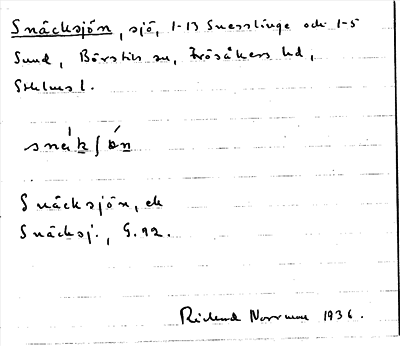 Snäcksjön, sjö, 1-13 Snesslinge och 1-5
Sund, Börstils sn, Frösåkers hd,
Sthlms l.
snákʃön
Snäcksjön, ek
Snäcksj., G. 92.
Rickard Norrman 1936.